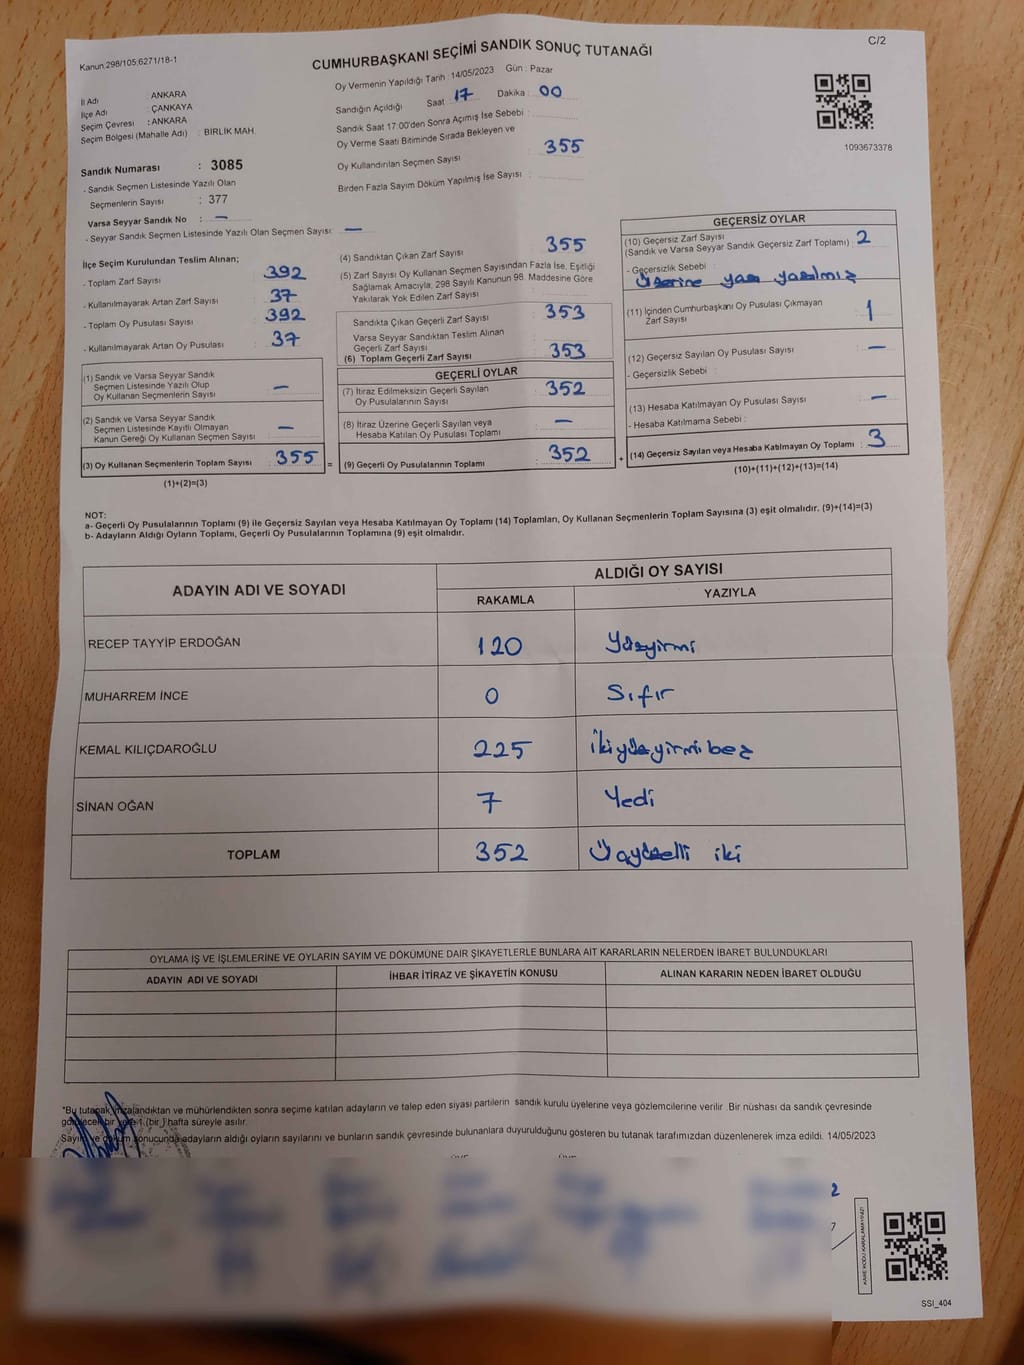 Kanun:298/105;6271/18-1
CUMHURBAŞKANI SEÇİMİ SANDIK SONUÇ TUTANAĞI
C/2
İl Adı : ANKARA
İlçe Adı : ÇANKAYA
Seçim Çevresi : ANKARA
Seçim Bölgesi (Mahalle Adı) : BİRLİK MAH.
Sandık Numarası : 3085
- Sandık Seçmen Listesinde Yazılı Olan
Seçmenlerin Sayısı : 377
Varsa Seyyar Sandık No : —
- Seyyar Sandık Seçmen Listesinde Yazılı Olan Seçmen Sayısı: —
Oy Vermenin Yapıldığı Tarih : 14/05/2023 Gün : Pazar
Sandığın Açıldığı Saat 17 Dakika : 00
Sandık Saat 17.00'den Sonra Açımış İse Sebebi :
Oy Verme Saati Bitiminde Sırada Bekleyen ve
Oy Kullandırılan Seçmen Sayısı 355
Birden Fazla Sayım Döküm Yapılmış İse Sayısı :
1093673378
İlçe Seçim Kurulundan Teslim Alınan;
- Toplam Zarf Sayısı : 392
- Kullanılmayarak Artan Zarf Sayısı : 37
- Toplam Oy Pusulası Sayısı : 392
- Kullanılmayarak Artan Oy Pusulası : 37
(1) Sandık ve Varsa Seyyar Sandık
Seçmen Listesinde Yazılı Olup
Oy Kullanan Seçmenlerin Sayısı : —
(2) Sandık ve Varsa Seyyar Sandık
Seçmen Listesinde Kayıtlı Olmayan
Kanun Gereği Oy Kullanan Seçmen Sayısı : —
(3) Oy Kullanan Seçmenlerin Toplam Sayısı : 355 =
(1)+(2)=(3)
(4) Sandıktan Çıkan Zarf Sayısı : 355
(5) Zarf Sayısı Oy Kullanan Seçmen Sayısından Fazla İse, Eşitliği
Sağlamak Amacıyla, 298 Sayılı Kanunun 98. Maddesine Göre
Yakılarak Yok Edilen Zarf Sayısı :
Sandıkta Çıkan Geçerli Zarf Sayısı : 353
Varsa Seyyar Sandıktan Teslim Alınan
Geçerli Zarf Sayısı :
(6) Toplam Geçerli Zarf Sayısı : 353
GEÇERLİ OYLAR
(7) İtiraz Edilmeksizin Geçerli Sayılan
Oy Pusulalarının Sayısı : 352
(8) İtiraz Üzerine Geçerli Sayılan veya
Hesaba Katılan Oy Pusulası Toplamı : —
(9) Geçerli Oy Pusulalarının Toplamı : 352 +
GEÇERSİZ OYLAR
(10) Geçersiz Zarf Sayısı
(Sandık ve Varsa Seyyar Sandık Geçersiz Zarf Toplamı) : 2
- Geçersizlik Sebebi :
Üzerine yazı yazılmış
(11) İçinden Cumhurbaşkanı Oy Pusulası Çıkmayan
Zarf Sayısı : 1
(12) Geçersiz Sayılan Oy Pusulası Sayısı : —
- Geçersizlik Sebebi :
(13) Hesaba Katılmayan Oy Pusulası Sayısı : —
- Hesaba Katılmama Sebebi :
(14) Geçersiz Sayılan veya Hesaba Katılmayan Oy Toplamı : 3
(10)+(11)+(12)+(13)=(14)
NOT:
a- Geçerli Oy Pusulalarının Toplamı (9) ile Geçersiz Sayılan veya Hesaba Katılmayan Oy Toplamı (14) Toplamları, Oy Kullanan Seçmenlerin Toplam Sayısına (3) eşit olmalıdır. (9)+(14)=(3)
b- Adayların Aldığı Oyların Toplamı, Geçerli Oy Pusulalarının Toplamına (9) eşit olmalıdır.
ADAYIN ADI VE SOYADI ALDIĞI OY SAYISI
RAKAMLA YAZIYLA
RECEP TAYYİP ERDOĞAN 120 Yüzyirmi
MUHARREM İNCE 0 Sıfır
KEMAL KILIÇDAROĞLU 225 İkiyüzyirmibeş
SİNAN OĞAN 7 Yedi
TOPLAM 352 Üçyüzelli iki
OYLAMA İŞ VE İŞLEMLERİNE VE OYLARIN SAYIM VE DÖKÜMÜNE DAİR ŞİKAYETLERLE BUNLARA AİT KARARLARIN NELERDEN İBARET BULUNDUKLARI
ADAYIN ADI VE SOYADI İHBAR İTİRAZ VE ŞİKAYETİN KONUSU ALINAN KARARIN NEDEN İBARET OLDUĞU
"Bu tutanak imzalandıktan ve mühürlendikten sonra seçime katılan adayların ve talep eden siyasi partilerin sandık kurulu üyelerine veya gözlemcilerine verilir .Bir nüshası da sandık çevresinde
bir yere 1 (bir) hafta süreyle asılır.
Sayım ve döküm sonucunda adayların aldığı oyların sayılarını ve bunların sandık çevresinde bulunanlara duyurulduğunu gösteren bu tutanak tarafımızdan düzenlenerek imza edildi. 14/05/2023
KARE KODU KARALAMAYINIZ!
SSI_404